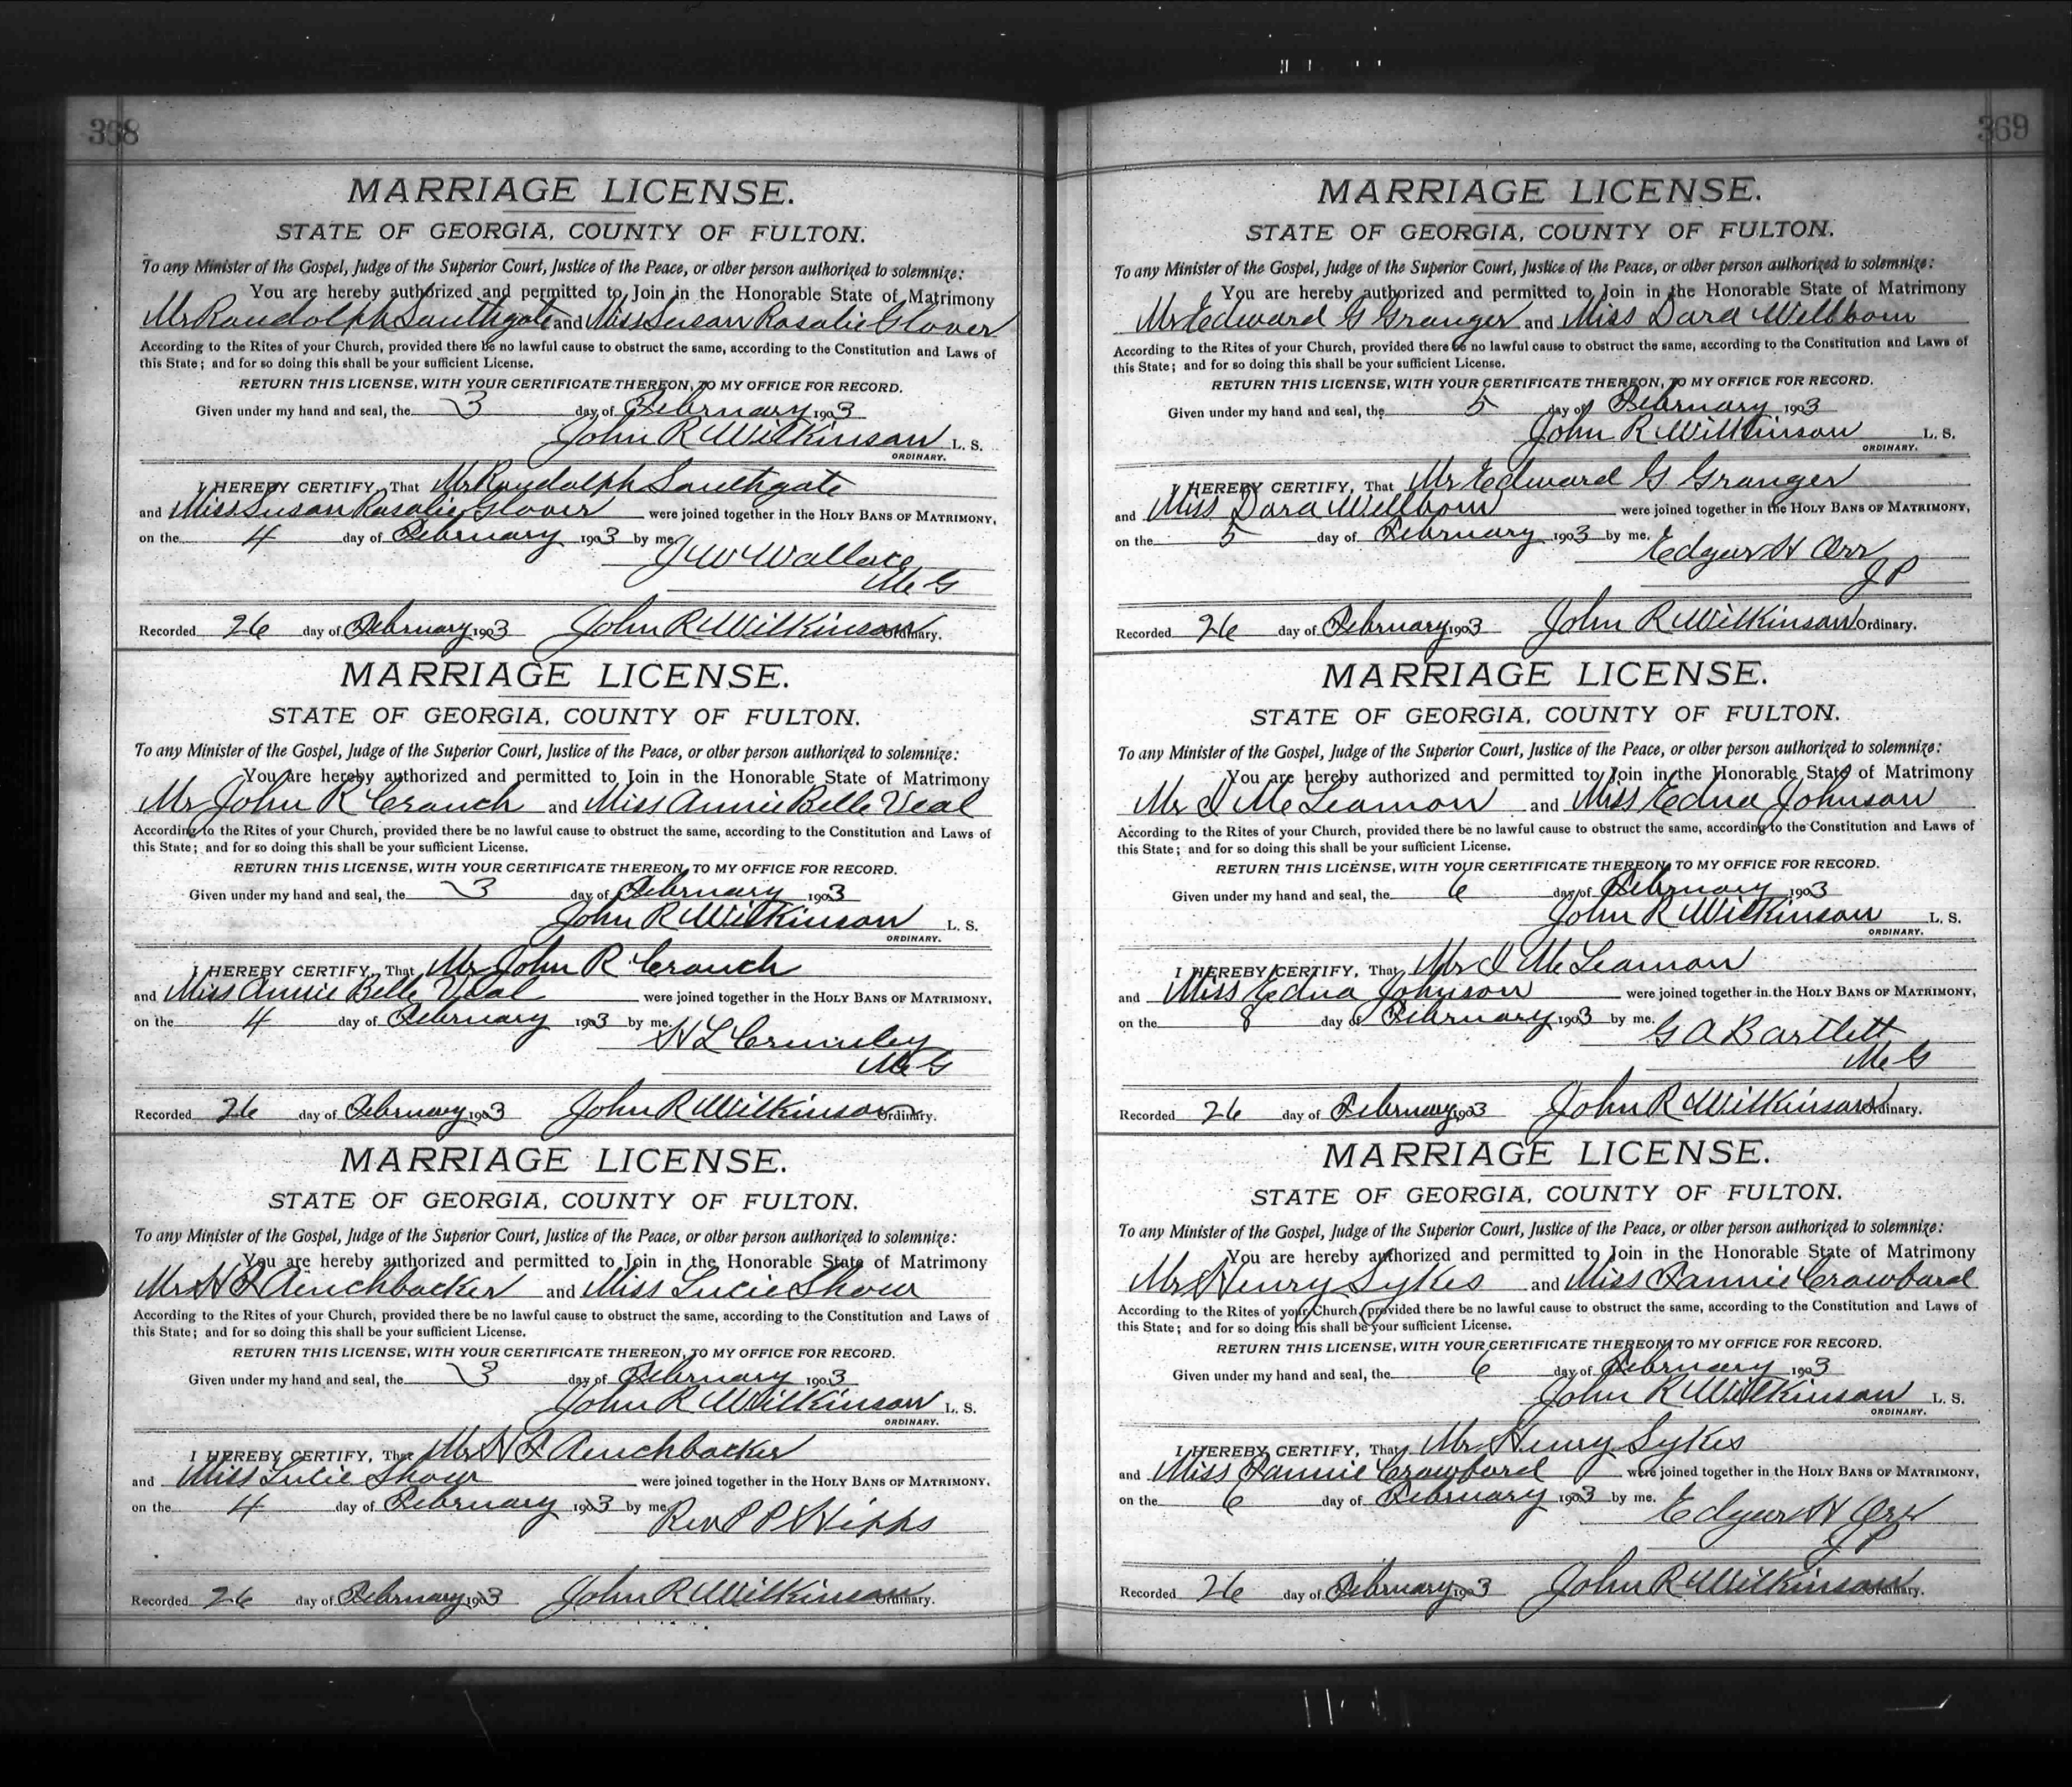 368
MARRIAGE LICENSE.
STATE OF GEORGIA, COUNTY OF FULTON.
To any Minister of the Gospel, Judge of the Superior Court, Justice of the Peace, or other person authorized to solemnize:
You are hereby authorized and permitted to Join in the Honorable State of Matrimony
Mr Randolph Southgate and Miss Susan Rosalie Glover
According to the Rites of your Church, provided there be no lawful cause to obstruct the same, according to the Constitution and Laws of
this State; and for so doing this shall be your sufficient License.
RETURN THIS LICENSE, WITH YOUR CERTIFICATE THEREON, TO MY OFFICE FOR RECORD.
Given under my hand and seal, the 3 day of February 1903
John R Wilkinson L. S.
ORDINARY.
I HEREBY CERTIFY, That Mr Randolph Southgate
and Miss Susan Rosalie Glover were joined together in the HOLY BANS OF MATRIMONY,
on the 4 day of February 1903 by me.
J W Wallace
M G
Recorded 26 day of February 1903 John R Wilkinson Ordinary.
MARRIAGE LICENSE.
STATE OF GEORGIA, COUNTY OF FULTON.
To any Minister of the Gospel, Judge of the Superior Court, Justice of the Peace, or other person authorized to solemnize:
You are hereby authorized and permitted to Join in the Honorable State of Matrimony
Mr John R Crouch and Miss Annie Belle Veal
According to the Rites of your Church, provided there be no lawful cause to obstruct the same, according to the Constitution and Laws of
this State; and for so doing this shall be your sufficient License.
RETURN THIS LICENSE, WITH YOUR CERTIFICATE THEREON, TO MY OFFICE FOR RECORD.
Given under my hand and seal, the 3 day of February 1903
John R Wilkinson L. S.
ORDINARY.
I HEREBY CERTIFY, That Mr John R Crouch
and Miss Annie Belle Veal were joined together in the HOLY BANS OF MATRIMONY,
on the 4 day of February 1903 by me.
H L Crumley
M G
Recorded 26 day of February 1903 John R Wilkinson Ordinary.
MARRIAGE LICENSE.
STATE OF GEORGIA, COUNTY OF FULTON.
To any Minister of the Gospel, Judge of the Superior Court, Justice of the Peace, or other person authorized to solemnize:
You are hereby authorized and permitted to Join in the Honorable State of Matrimony
Mr H F Aenchbacker and Miss Lucie Shour
According to the Rites of your Church, provided there be no lawful cause to obstruct the same, according to the Constitution and Laws of
this State; and for so doing this shall be your sufficient License.
RETURN THIS LICENSE, WITH YOUR CERTIFICATE THEREON, TO MY OFFICE FOR RECORD.
Given under my hand and seal, the 3 day of February 1903
John R Wilkinson L. S.
ORDINARY.
I HEREBY CERTIFY, That Mr H F Aenchbacker
and Miss Lucie Shour were joined together in the HOLY BANS OF MATRIMONY,
on the 4 day of February 1903 by me.
Rev P P Hipps
Recorded 26 day of February 1903 John R Wilkinson Ordinary.
369
MARRIAGE LICENSE.
STATE OF GEORGIA, COUNTY OF FULTON.
To any Minister of the Gospel, Judge of the Superior Court, Justice of the Peace, or other person authorized to solemnize:
You are hereby authorized and permitted to Join in the Honorable State of Matrimony
Mr Edward G Granger and Miss Dora Wellborn
According to the Rites of your Church, provided there be no lawful cause to obstruct the same, according to the Constitution and Laws of
this State; and for so doing this shall be your sufficient License.
RETURN THIS LICENSE, WITH YOUR CERTIFICATE THEREON, TO MY OFFICE FOR RECORD.
Given under my hand and seal, the 5 day of February 1903
John R Wilkinson L. S.
ORDINARY.
I HEREBY CERTIFY, That Mr Edward G Granger
and Miss Dora Wellborn were joined together in the HOLY BANS OF MATRIMONY,
on the 5 day of February 1903 by me.
Edgar H Orr
J P
Recorded 26 day of February 1903 John R Wilkinson Ordinary.
MARRIAGE LICENSE.
STATE OF GEORGIA, COUNTY OF FULTON.
To any Minister of the Gospel, Judge of the Superior Court, Justice of the Peace, or other person authorized to solemnize:
You are hereby authorized and permitted to Join in the Honorable State of Matrimony
Mr I McLeamon and Miss Edna Johnson
According to the Rites of your Church, provided there be no lawful cause to obstruct the same, according to the Constitution and Laws of
this State; and for so doing this shall be your sufficient License.
RETURN THIS LICENSE, WITH YOUR CERTIFICATE THEREON, TO MY OFFICE FOR RECORD.
Given under my hand and seal, the 6 day of February 1903
John R Wilkinson L. S.
ORDINARY.
I HEREBY CERTIFY, That Mr I McLeamon
and Miss Edna Johnson were joined together in the HOLY BANS OF MATRIMONY,
on the 8 day of February 1903 by me.
G A Bartlett
M G
Recorded 26 day of February 1903 John R Wilkinson Ordinary.
MARRIAGE LICENSE.
STATE OF GEORGIA, COUNTY OF FULTON.
To any Minister of the Gospel, Judge of the Superior Court, Justice of the Peace, or other person authorized to solemnize:
You are hereby authorized and permitted to Join in the Honorable State of Matrimony
Mr Henry Sykes and Miss Fannie Crawford
According to the Rites of your Church, provided there be no lawful cause to obstruct the same, according to the Constitution and Laws of
this State; and for so doing this shall be your sufficient License.
RETURN THIS LICENSE, WITH YOUR CERTIFICATE THEREON, TO MY OFFICE FOR RECORD.
Given under my hand and seal, the 6 day of February 1903
John R Wilkinson L. S.
ORDINARY.
I HEREBY CERTIFY, That Mr Henry Sykes
and Miss Fannie Crawford were joined together in the HOLY BANS OF MATRIMONY,
on the 6 day of February 1903 by me.
Edgar H Orr
J P
Recorded 26 day of February 1903 John R Wilkinson Ordinary.